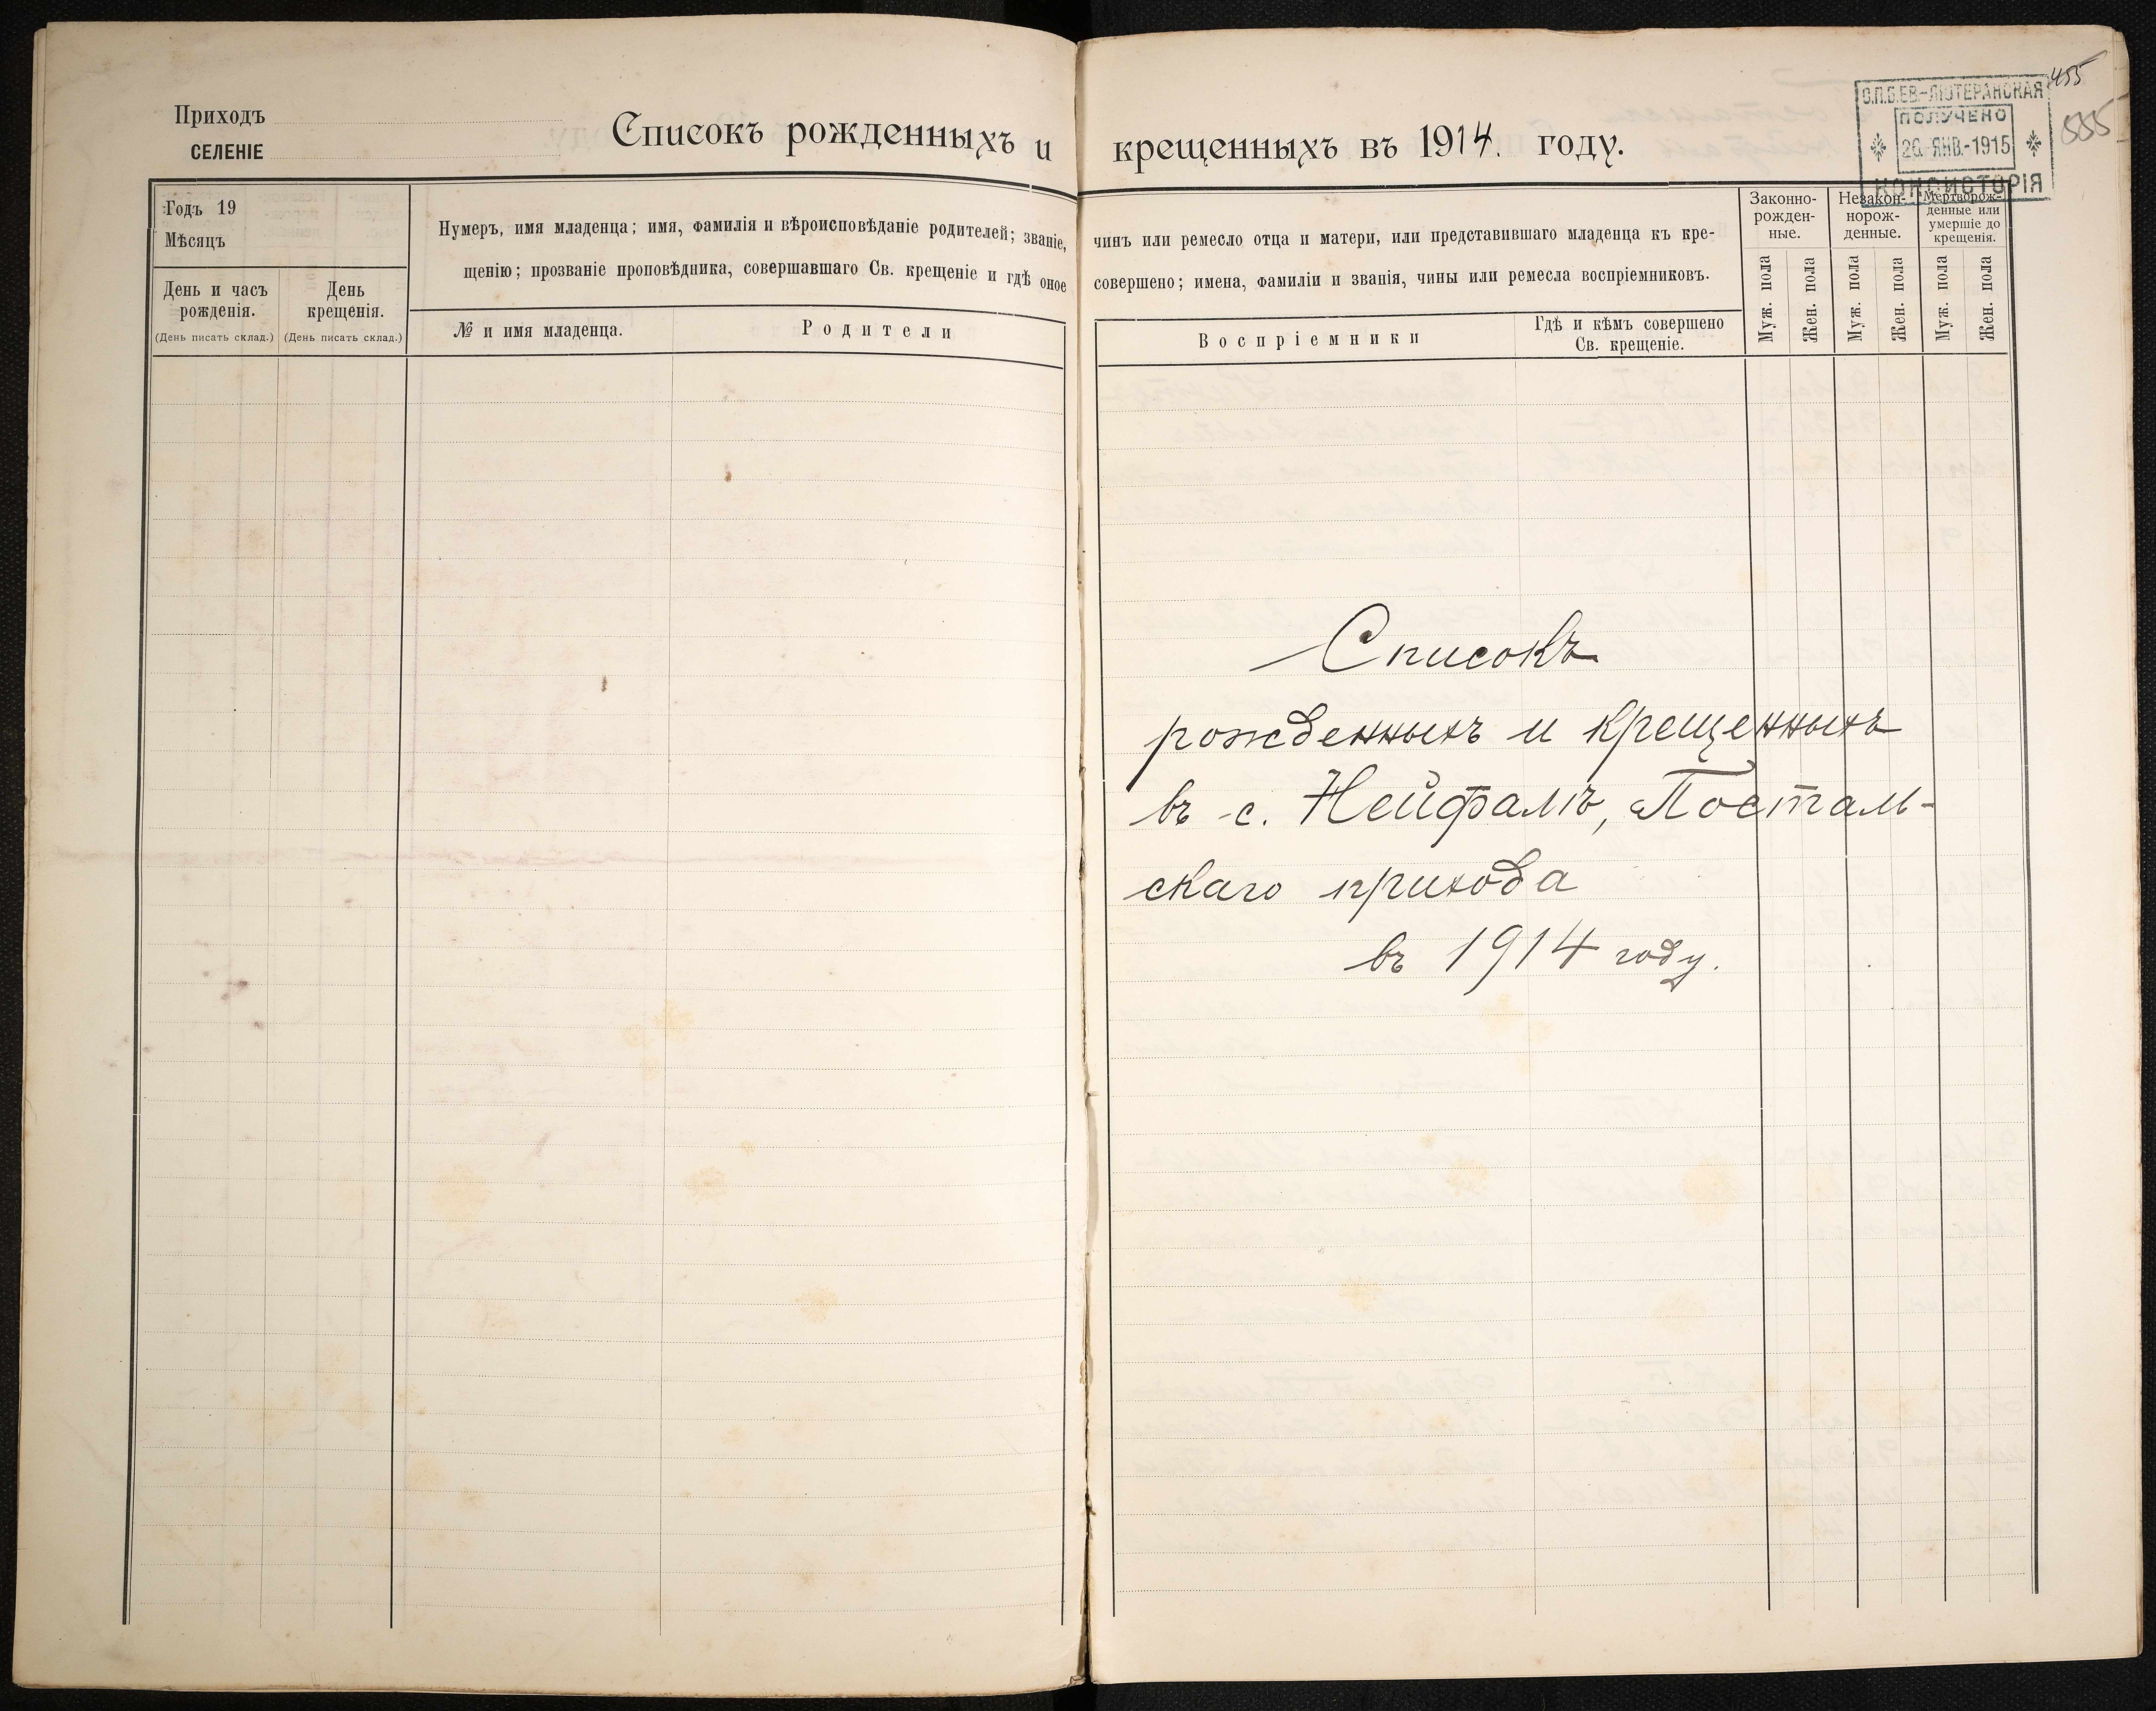 Приходъ
СЕЛЕНІЕ
Списокъ рожденныхъ и крещенныхъ въ 1914. году.
С.П.Б.ЕВ.-ЛЮТЕРАНСКАЯ
ПОЛУЧЕНО
20. ЯНВ.-1915
КОНСИСТОРІЯ
455
555
Годъ 19
Мѣсяцъ
День и часъ рожденія.
(День писать склад.)
День крещенія.
(День писать склад.)
Нумеръ, имя младенца; имя, фамилія и вѣроисповѣданіе родителей; званіе, чинъ или ремесло отца и матери, или представившаго младенца къ кре-
щенію; прозваніе проповѣдника, совершавшаго Св. крещеніе и гдѣ оное совершено; имена, фамиліи и званія, чины или ремесла воспріемниковъ.
№ и имя младенца.
Родители
Воспріемники
Гдѣ и кѣмъ совершено
Св. крещеніе.
Законно-
рожден-
ные.
Незакон-
норож-
денные.
Мертворож-
денные или
умершіе до
крещенія.
Муж. пола
Жен. пола
Муж. пола
Жен. пола
Муж. пола
Жен. пола
Списокъ
рожденныхъ и крещенныхъ
въ с. Нейфалѣ, Посталь-
скаго прихода
въ 1914 году.